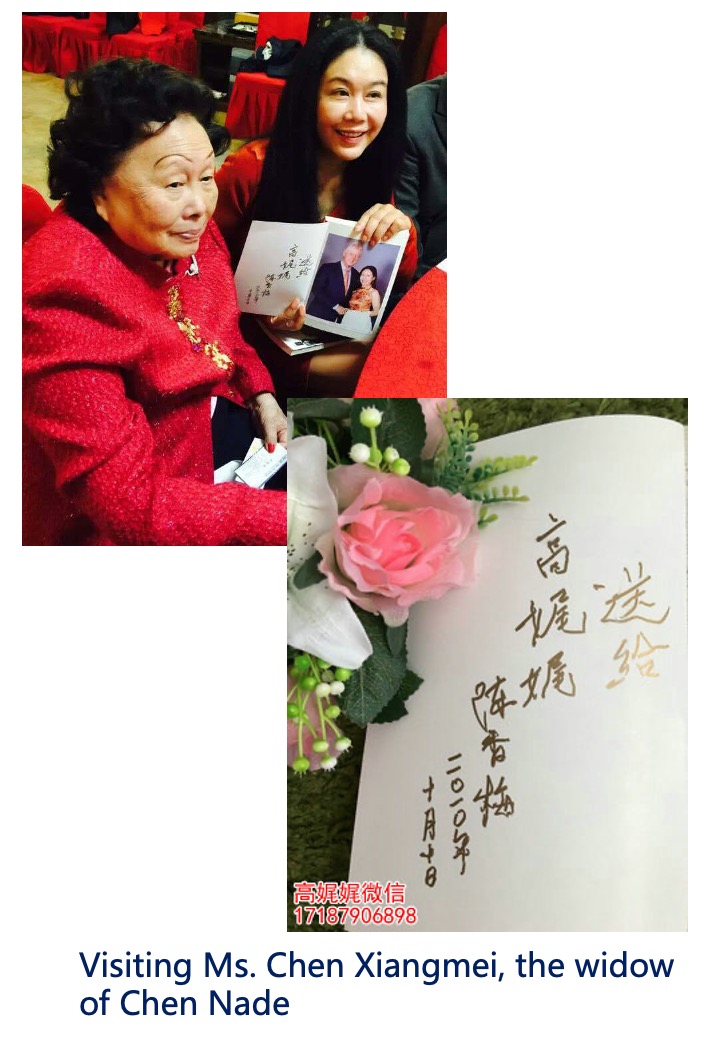 送给
高娓娓
陈香梅
送给
高娓娓
陈香梅
二〇一〇年
十月十日
高娓娓微信
17187906898
Visiting Ms. Chen Xiangmei, the widow
of Chen Nade